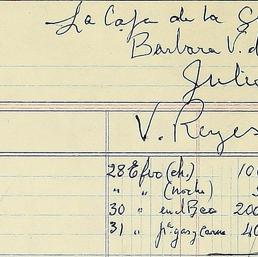 La Casa de la G
Bárbara V. d
Julio
V. Reyes
28 Efvo (ch.) 10
" " (noche)
30 " en el Bco 200
31 " pa gas y Carne 40